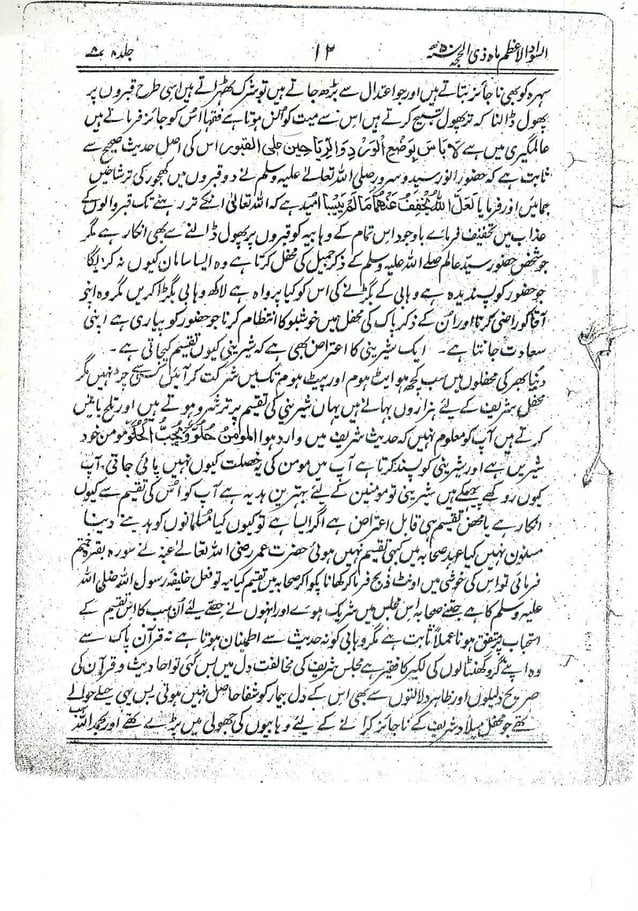 السواد الاعظم ماہ ذی الحجہ ۵۰ھ ۱۲ جلد ۵
سہرہ کو بھی ناجائز بتاتے ہیں اور جو اعتدال سے بڑھ جاتے ہیں تو شرک ٹھہراتے ہیں اسی طرح قبروں پر
پھول ڈالنا کہ تر پھول تسبیح کرتے ہیں اس سے میت کو انس ہوتا ہے فقہا اس کو جائز فرماتے ہیں
عالمگیری میں ہے لا باس بوضع الورد والریاحین علی القبور اس کی اصل حدیث صحیح سے
ثابت ہے کہ حضور انور سید و سرور صلی اللہ تعالے علیہ وسلم نے دو قبروں میں کھجور کی تر شاخیں
جمائیں اور فرمایا لعل اللہ یخفف عنھما مالم ییبسا امید ہے کہ اللہ تعالیٰ انکے تر رہنے تک قبر والوں کے
عذاب میں تخفیف فرمائے باوجود اس تمام کے وہابیہ کو قبروں پر پھول ڈالنے سے بھی انکار ہے مگر
جو شخص حضور سید عالم صلے اللہ علیہ وسلم کے ذکر جمیل کی محفل کرتا ہے وہ ایسا سامان کیوں نہ کریگا
جو حضور کو پسندیدہ ہے وہابی کے بگڑنے کی اس کو کیا پرواہ ہے لاکھ وہابی بگڑا کریں مگر وہ اپنے
آقا کو راضی کرتا اور ان کے ذکر پاک کی محفل میں خوشبو کا انتظام کرنا جو حضور کو پیاری ہے اپنی
سعادت جانتا ہے ۔ ایک شیرینی کا اعتراض بھی ہے کہ شیرینی کیوں تقسیم کیجاتی ہے ۔
دنیا بھر کی محفلوں میں سب کچھ ہو ایٹ ہوم اور پیٹ ہوم تک میں شرکت کر آئیں کسی سے چڑ نہیں مگر
محفل شریف کے لیے ہزاروں بہانے ہیں یہاں شیرینی کی تقسیم پر ترشرو ہوتے ہیں اور تلخ باتیں
کرتے ہیں آپ کو معلوم نہیں کہ حدیث شریف میں وارد ہوا المومن حلو و یحب الحلو مومن خود
شیریں ہے اور شیرینی کو پسند کرتا ہے آپ میں مومن کی یہ خصلت کیوں نہیں پائی جاتی، آپ
کیوں روکھے پھیکے ہیں شیرینی تو مومنین کے لئے بہترین ہدیہ ہے آپ کو اس کی تقسیم سے کیوں
انکار ہے یا محض تقسیم ہی قابل اعتراض ہے اگر ایسا ہے تو کیوں کیا مسلمانوں کو ہدیے دینا
مسنون نہیں کیا عہد صحابہ میں کبھی تقسیم نہیں ہوئی حضرت عمر رضی اللہ تعالے عنہ نے سورہ بقرہ ختم
فرمائی تو اس کی خوشی میں اونٹ ذبح فرما کر کھانا پکوا کر صحابہ میں تقسیم کیا یہ تو فعل خلیفہ رسول اللہ صلی اللہ
علیہ وسلم کا ہے جتنے صحابہ اس مجلس میں شریک ہوے اور انہوں نے حصے لئے ان سب کا اس تقسیم کے
استحباب پر متفق ہونا عملاً ثابت ہے مگر وہابی کو نہ حدیث سے اطمنان ہوتا ہے نہ قرآن پاک سے
وہ اپنے گرو گھنٹالوں کی لکیر کا فقیر ہے مجلس شریف کی مخالفت دل میں بس گئی تو احادیث و قرآن کی
صریح دلیلوں اور ظاہر دلالتوں سے بھی اس کے دل بیمار کو شفا حاصل نہیں ہوتی بس یہی حیلے حوالے
تھے جو محفل میلاد شریف کے ناجائز کرانے کے لیے وہابیوں کی جھولی میں پڑے تھے اور بحمد اللہ